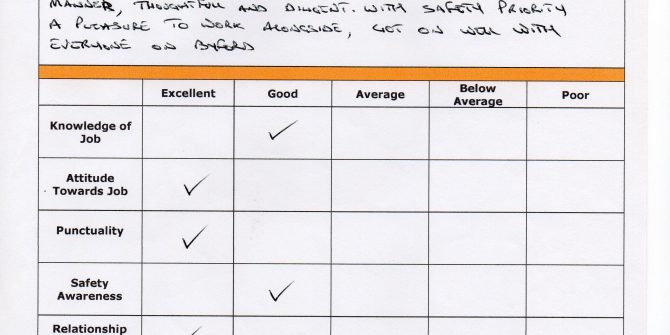 MANNER, THOUGHTFULL AND DILIGENT. WITH SAFETY PRIORITY
A PLEASURE TO WORK ALONGSIDE, GOT ON WELL WITH
EVERYONE ON
Excellent Good Average Below Average Poor
Knowledge of
Job
Attitude
Towards Job
Punctuality
Safety
Awareness
Relationship